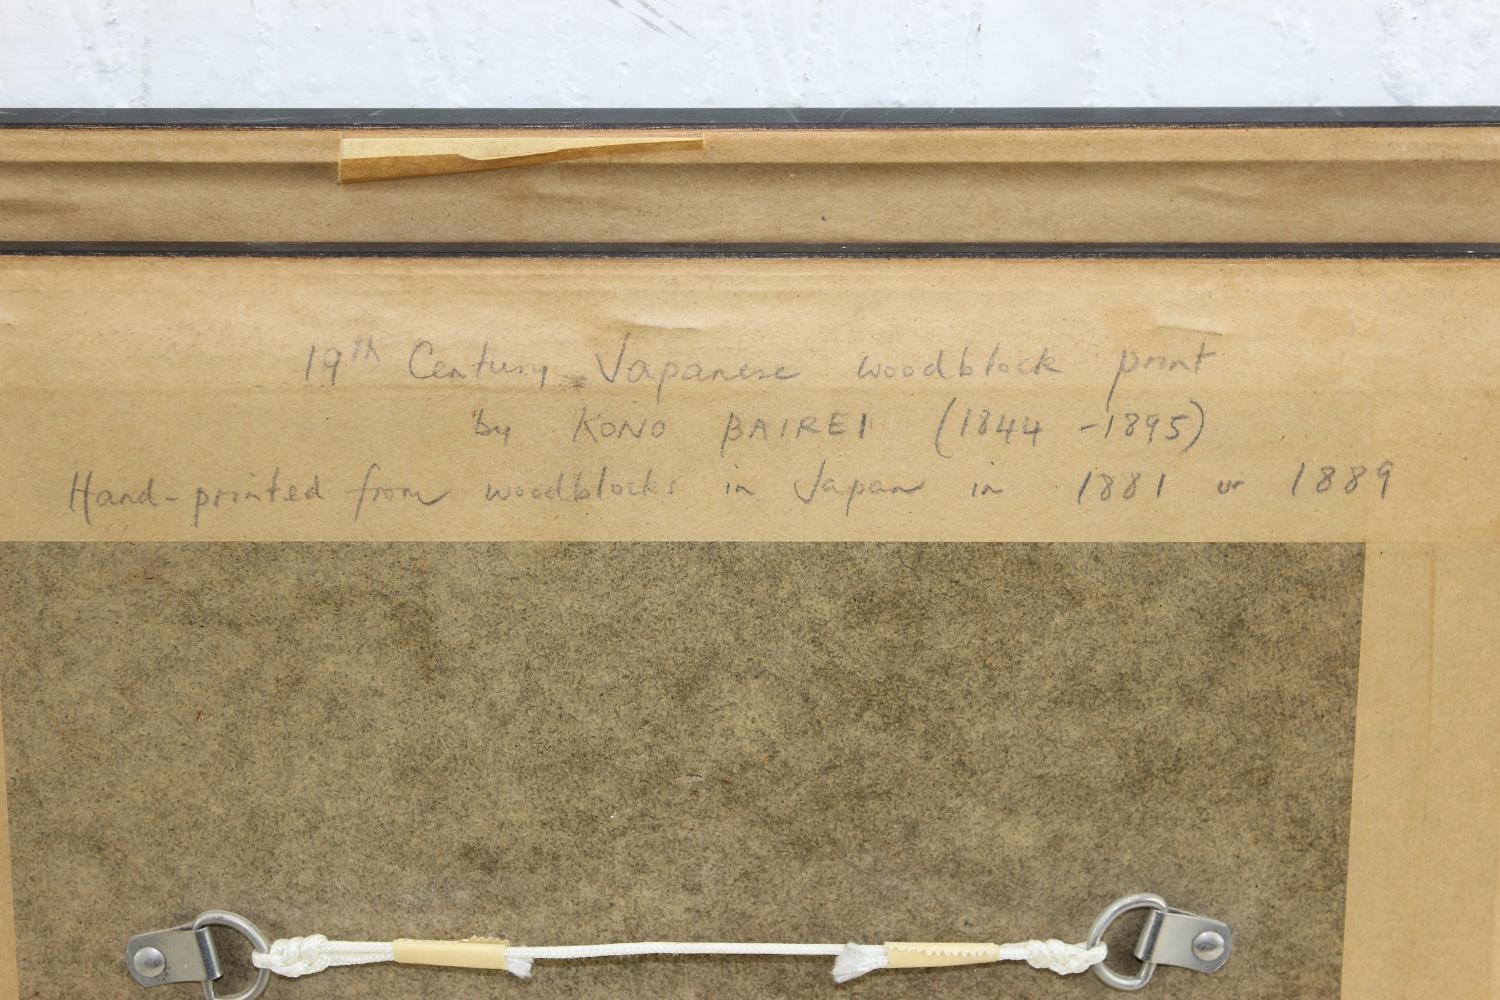 19th Century Japanese woodblock print
by KONO BAIREI (1844 - 1895)
Hand-printed from woodblocks in Japan in 1881 or 1889